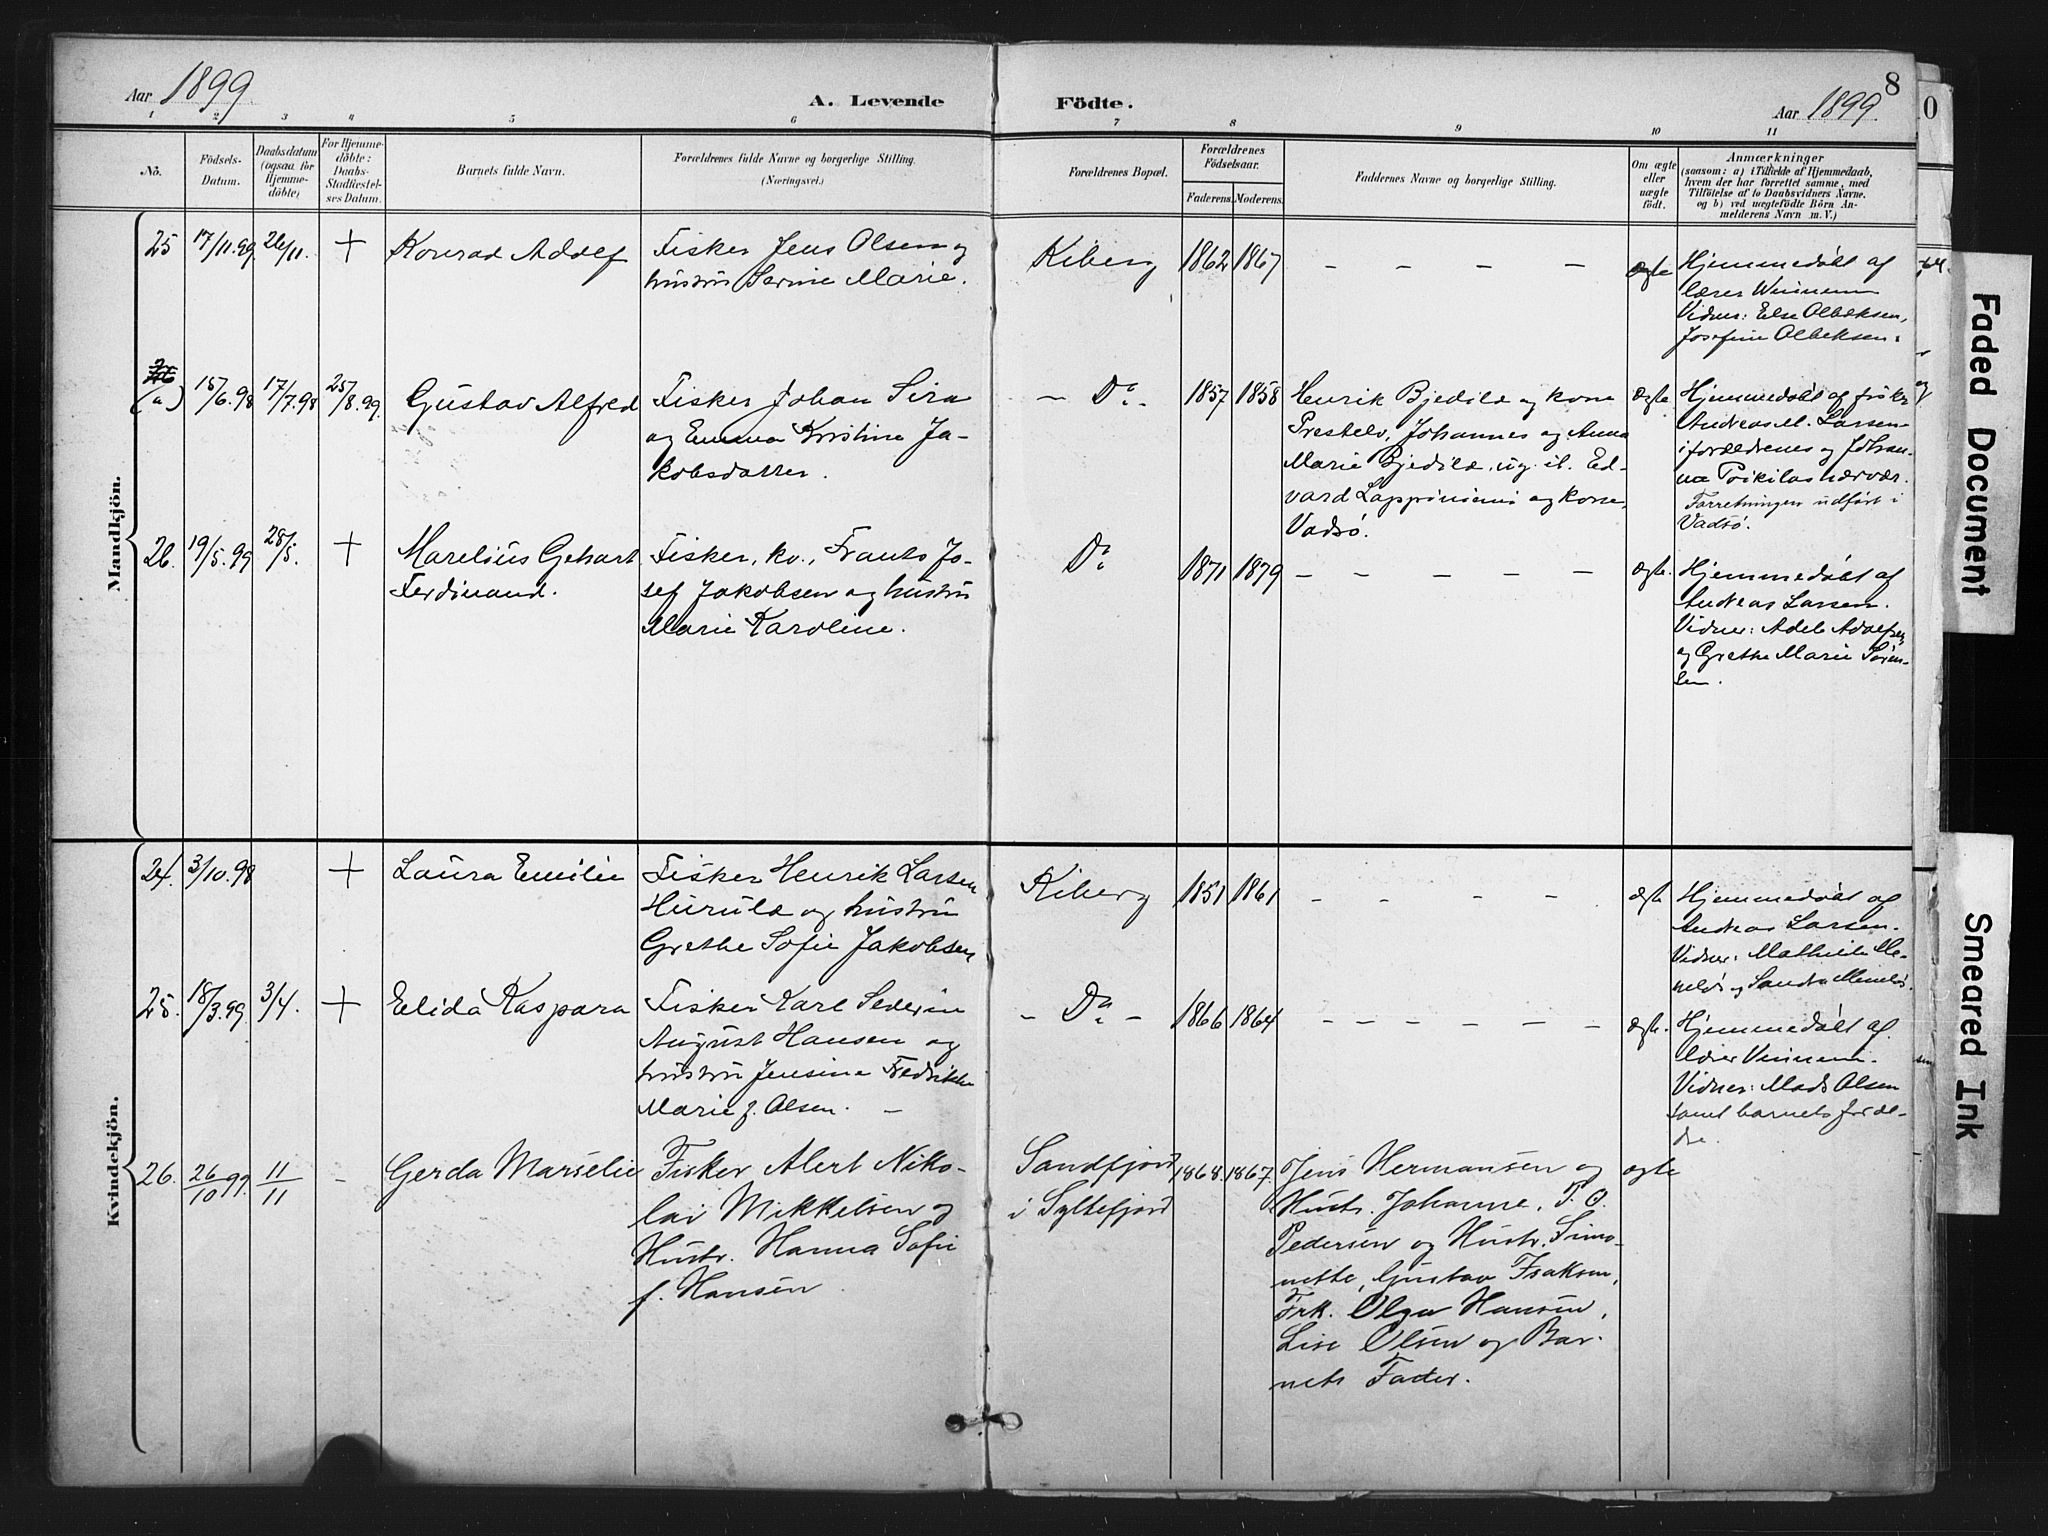 8
Aar 1899.
A. Levende
Födte.
Aar 1899.
1 2 3 4 5 6 7 8 9 10 11
No.
Födsels-
Datum.
Daabsdatum
(ogsaa for
Hjemme-
döbte)
For Hjemme-
döbte:
Daabs-
Stadfæstel-
ses Datum.
Barnets fulde Navn.
Forældrenes fulde Navne og borgerlige Stilling.
(Næringsvei.)
Forældrenes Bopæl.
Forældrenes
Födselsaar.
Faderens. Moderens.
Faddernes Navne og borgerlige Stilling.
Om ægte
eller
uægte
födt.
Anmærkninger
(saasom: a) i Tilfælde af Hjemmedaab,
hvem der har forrettet samme, med
Tilföielse af to Daabsvidners Navne.
og b) ved uægtefödte Börn An-
melderens Navn m. V.)
Mandkjön.
25 17/11.99 26/11. +
Konrad Adolf
Fisker Jens Olsen og
hustru Serine Marie.
Kiberg
1862 1867
– – – –
ægte
Hjemmedøbt af
lærer Winnem
Vidner: Else Olbeksen,
Josefine Olbeksen.
(a) 15/6.98 17/7.98 25/8.99.
Gustav Alfred
Fisker Johan Sira
og Emma Kristine Ja-
kobsdatter.
– Do. –
1857 1858
Henrik Bjedilæ og kone
Prestelv, Johannes og Anna
Marie Bjedilæ, ug. it. Ed-
vard Lappiniemi og kone,
Vadsø.
ægte
Hjemmedøbt af fisker
Andreas M. Larsen
i forældrenes og Johan-
na Poikilas nærvær.
Forretningen udført i
Vadsø.
26. 19/5.99 28/5. +
Marelius Gehart
Ferdinand.
Fisker, kv., Frants Jo-
sef Jakobsen og hustru
Marie Karoline.
Do.
1871 1879
– – – – –
ægte.
Hjemmedøbt af
Andreas Larsen.
Vidner: Adele Adolfsen
og Grethe Marie Søren-
sen.
Kvindekjön.
24. 3/10.98 +
Laura Emilie
Fisker Henrik Larsen
Hurulæ og hustru
Grethe Sofie Jakobsen
Kiberg
1851 1861
– – – –
ægte
Hjemmedøbt af
Andreas Larsen.
25. 18/3.99. 3/4. +
Elida Kaspara
Fisker Karl Severin
August Hansen og
hustru Jensine Fredrikke
Marie f. Olsen. –
– Do. –
1866 1864
– – – – – –
ægte.
Hjemmedøbt af
lærer Vinnem.
Vidner: Mads Olsen
samt barnets foræl-
dre.
26. 26/10 99. 11/11 –
Gerda Marselie
Fisker Alert Niko-
lai Mikkelsen og
Hustr. Hanna Sofie
f. Hansen
Sandfjord
i Syltefjord
1868. 1867.
Jens Hermansen og
Hustr. Johanne, P. O.
Pedersen og Hustr. Simo-
nette, Gustav Isaksen,
Frk. Olga Hansen,
Lise Olsen og Bar-
nets Fader.
ægte
Faded Document
Smeared Ink